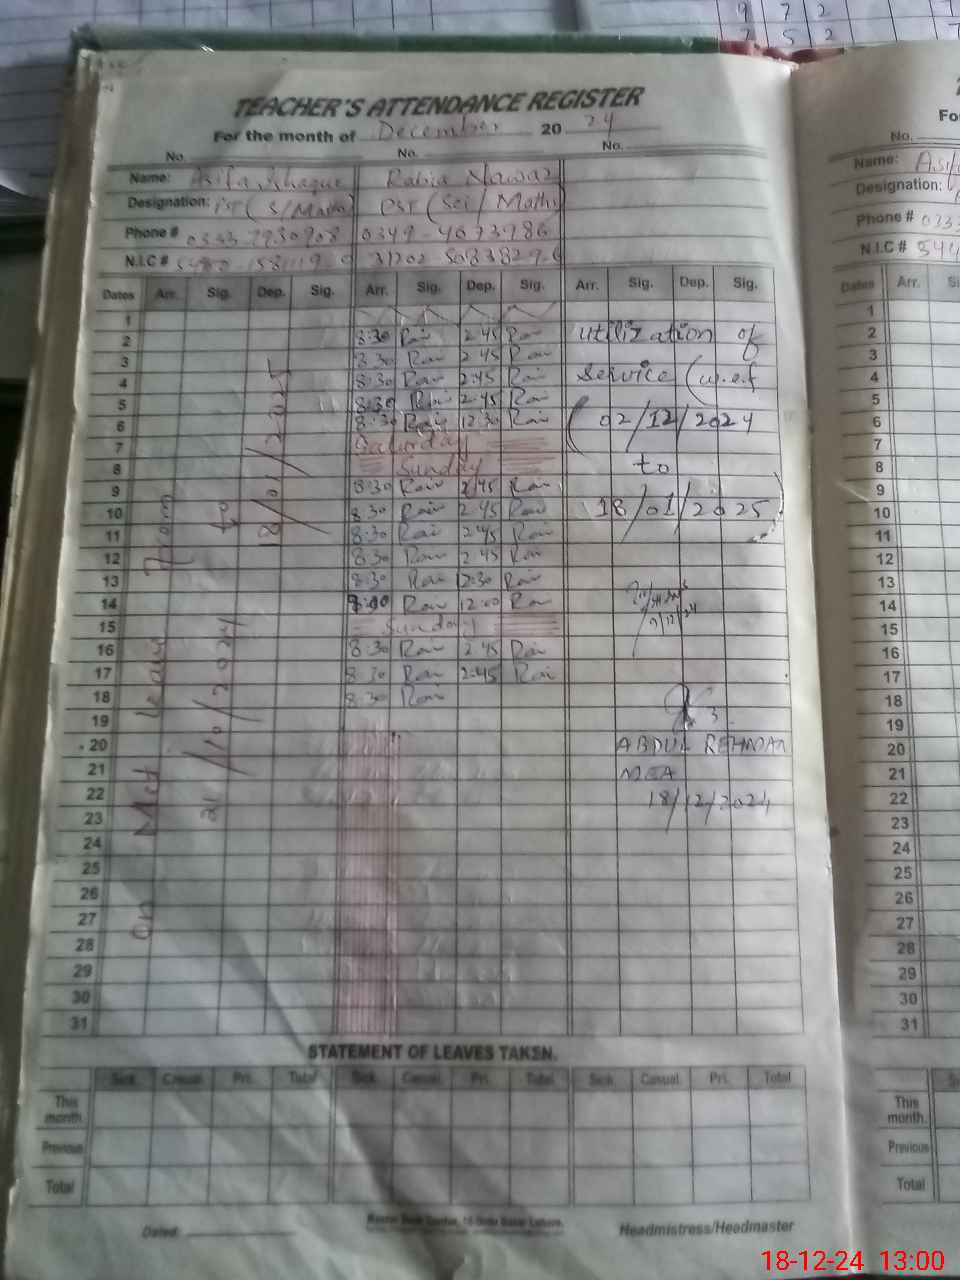 9 7 2
7 5 2
TEACHER'S ATTENDANCE REGISTER
For the month of December 20 24
No. No. No.
Name: Asifa Ishaque Rabia Nawaz
Designation: PST (S/Math) PST (Sci/Maths)
Phone # 0333 7930908 0349-4673986
N.I.C #
Dates Arr. Sig. Dep. Sig. Arr. Sig. Dep. Sig. Arr. Sig. Dep. Sig.
1
2 8:30 Rai 2:45 Rai utilization of
3 8:30 Rai 2:45 Rai
4 8:30 Rai 2:45 Rai service (w.e.f
5 8:30 Rai 2:45 Rai
6 8:30 Rai 12:30 Rai (02/12/2024
7 Saturday
8 Sunday to
9 8:30 Rai 2:45 Rai
10 8:30 Rai 2:45 Rai 18/01/2025)
11 8:30 Rai 2:45 Rai
12 8:30 Rai 2:45 Rai
13 8:30 Rai 12:30 Rai
14 Rai 12:00 Rai
15 Sunday
16 8:30 Rai 2:45 Rai
17 8:30 Rai 2:45 Rai
18 8:30 Rai
19
20 ABDUL REHMAN
21 MEA
22 18/12/2024
23
24
25
26
27
28
29
30
31
on leave from
/10/2024
to
18/01/2025
STATEMENT OF LEAVES TAKEN.
Sick. Casual. Pri. Total Sick. Casual. Pri. Total Sick. Casual. Pri. Total
This month.
Previous
Total
Dated: Headmistress/Headmaster
For
No.
Name: Asifa
Designation:
Phone # 0333
N.I.C #
Dates Arr.
1
2
3
4
5
6
7
8
9
10
11
12
13
14
15
16
17
18
19
20
21
22
23
24
25
26
27
28
29
30
31
This month.
Previous
Total
18-12-24 13:00